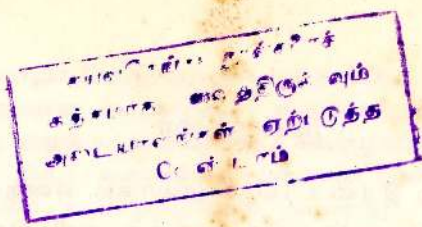 சுத்தமாக வைத்திருக்கவும்
அடையாளங்கள் ஏற்படுத்த
வேண்டாம்